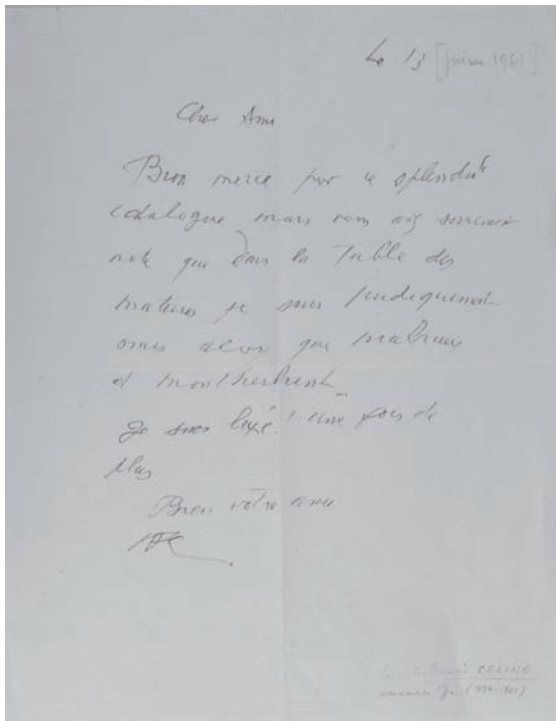 Le 13 [juin 1961]
Cher Ami
Bien merci pour ce splendide
catalogue mais vous avez
noté que dans la Table des
matières je suis pudiquement
omis alors que Malraux
et Montherlant..
Je suis lésé ! une fois de
plus
Bien votre ami
CELINE